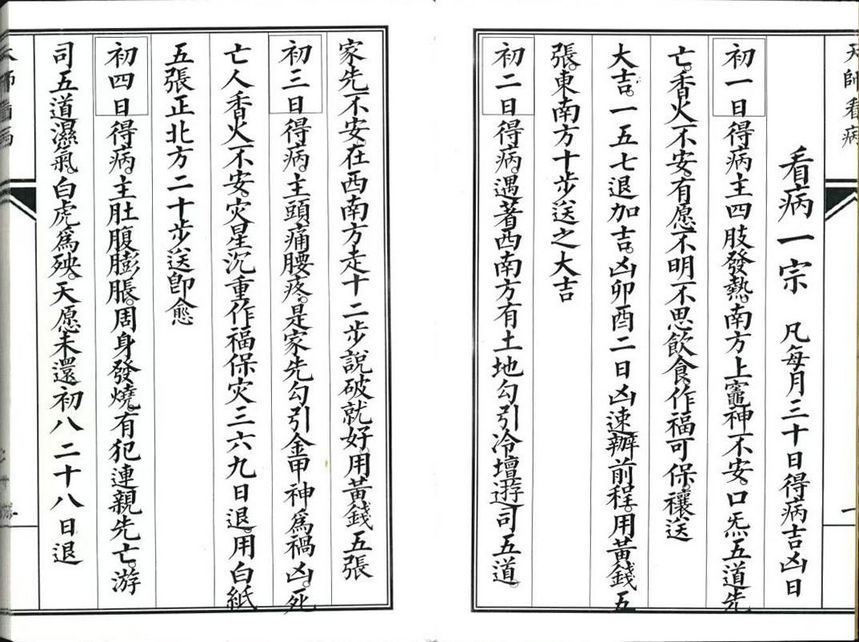 天師看病
看病一宗 凡每月三十日得病吉凶日
初一日得病主四肢發熱南方上竈神不安口炁五道先
亡香火不安有愿不明不思飲食作福可保禳送
大吉一五七退加吉凶卯酉二日凶速辦前程用黃錢五
張東南方十步送之大吉
初二日得病遇著西南方有土地勾引冷壇遊司五道
家先不安在西南方走十二步說破就好用黃錢五張
初三日得病主頭痛腰疼是家先勾引金甲神爲禍凶死
亡人香火不安灾星沉重作福保灾三六九日退用白紙
五張正北方二十步送卽愈
初四日得病主肚腹膨脹周身發燒有犯連親先亡游
司五道濕氣白虎爲殃天愿未還初八二十八日退
天師看病